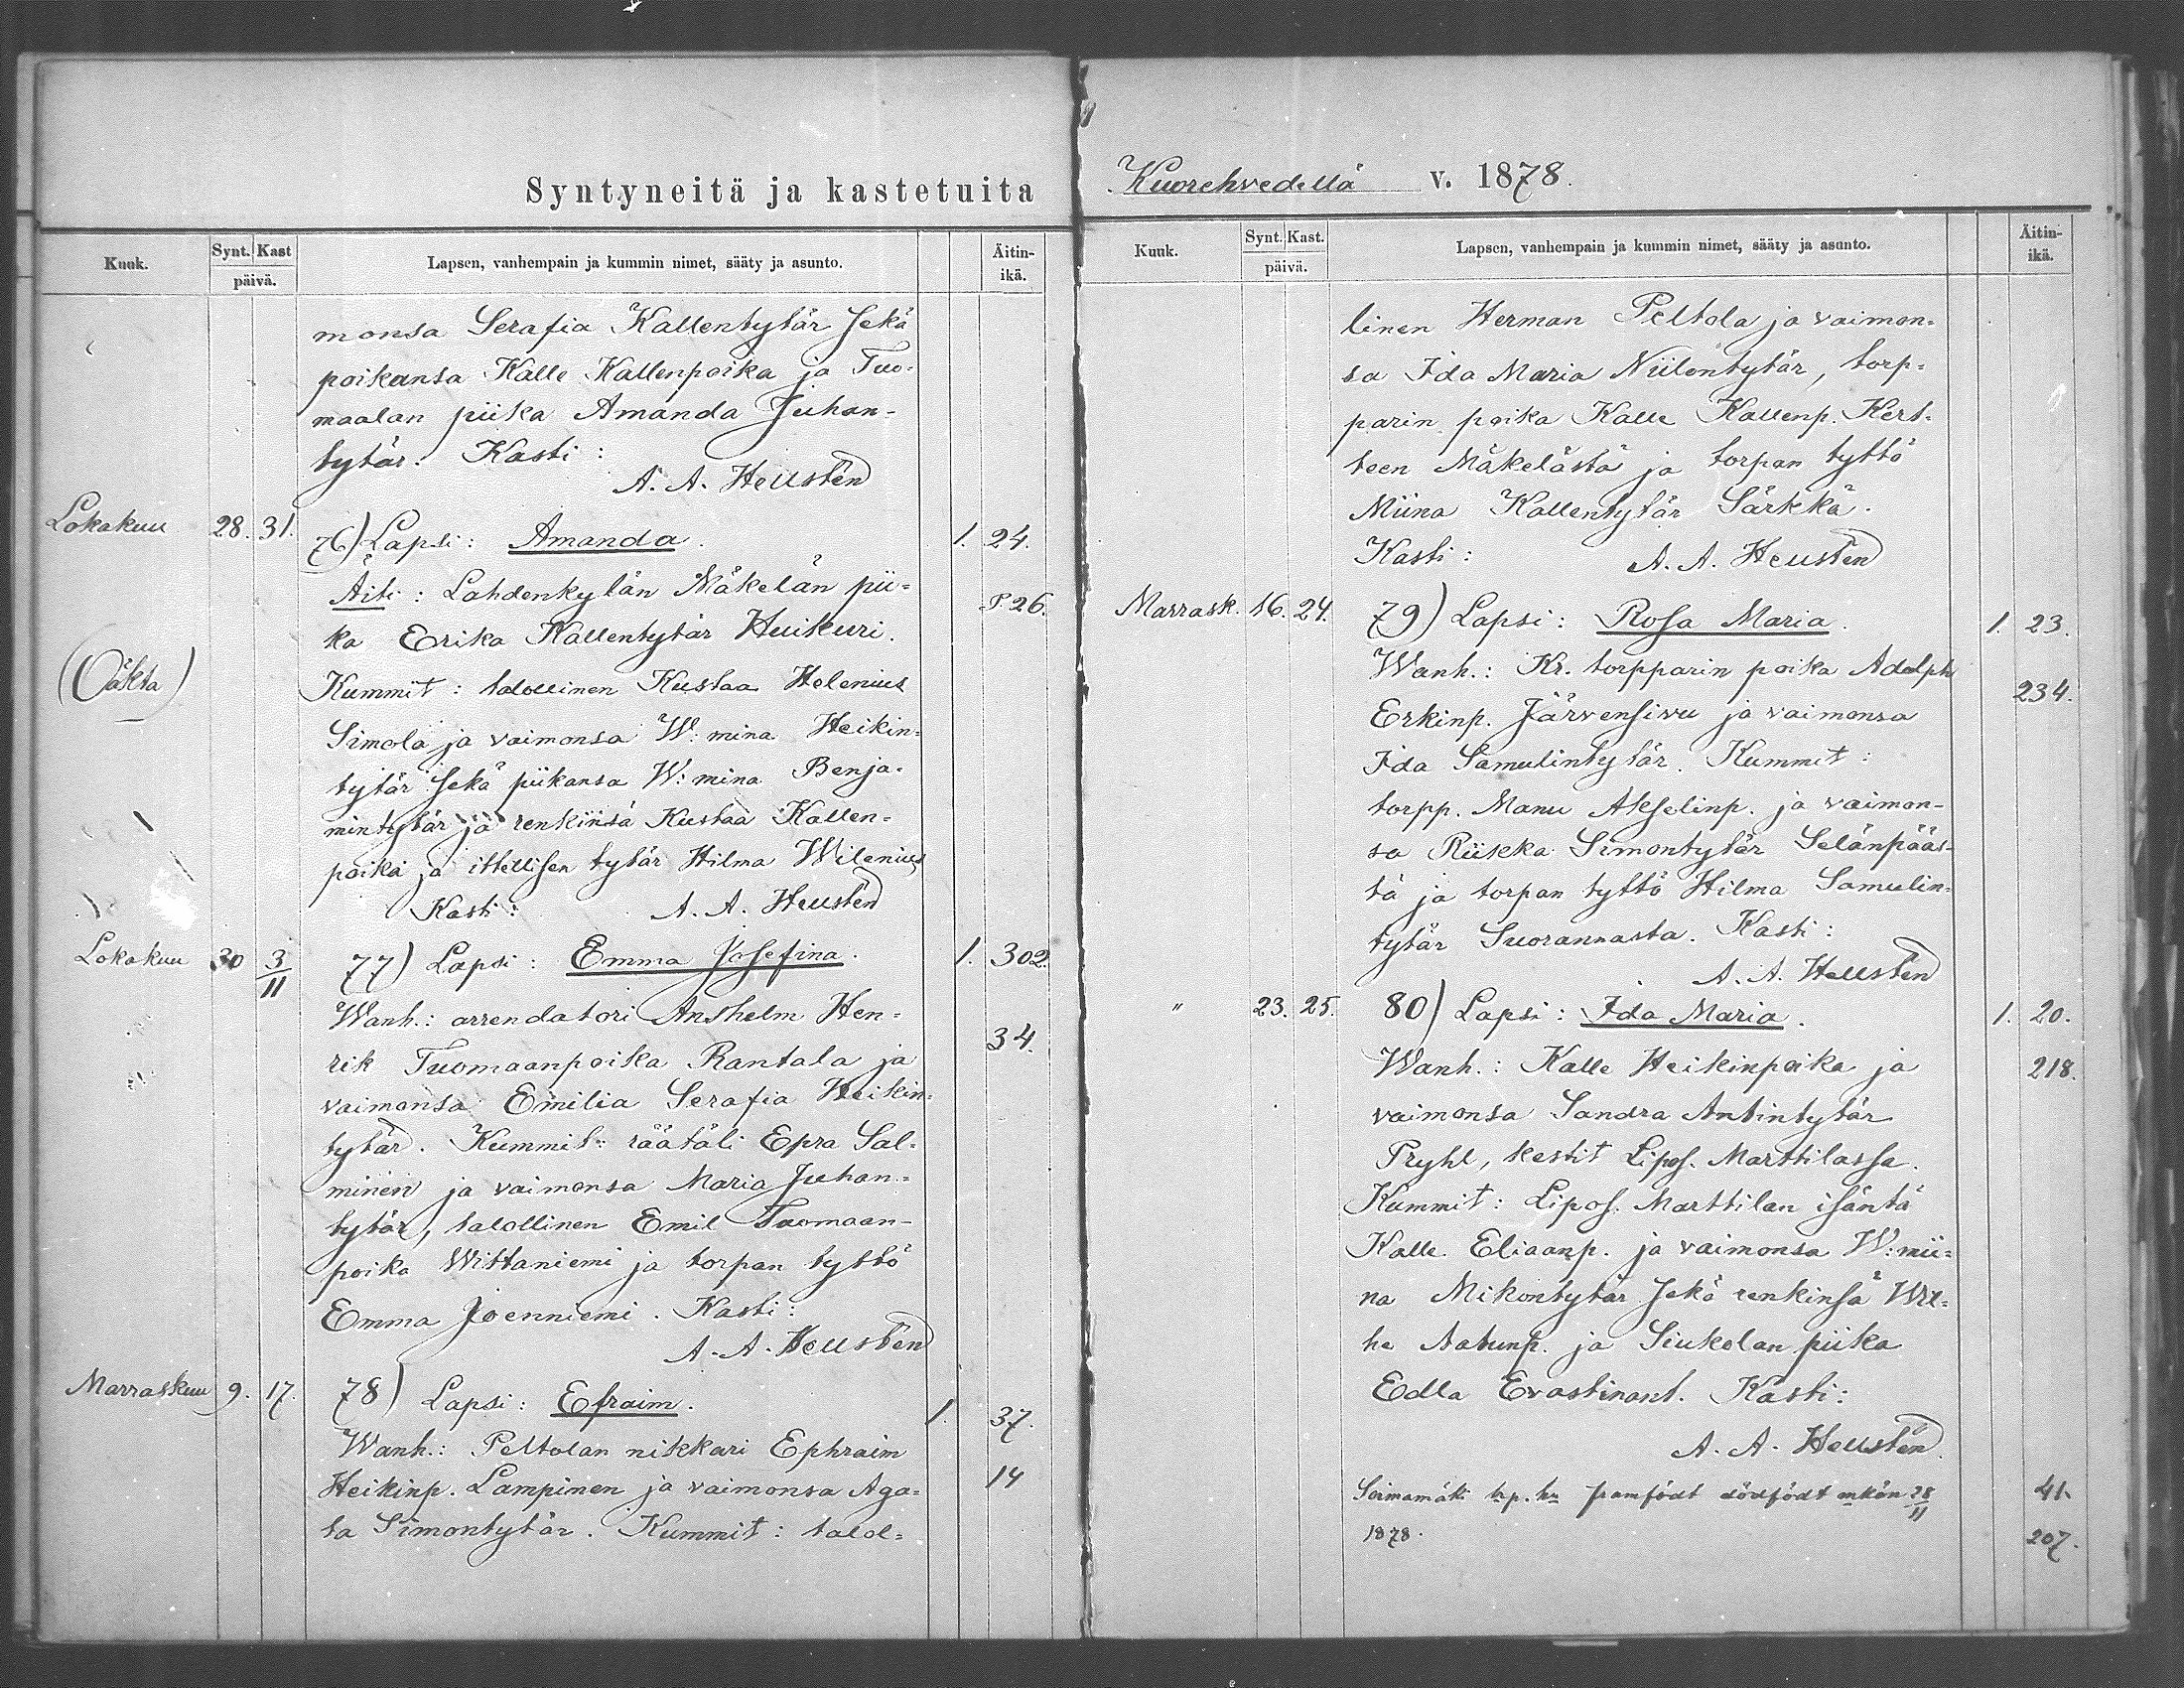 Syntyneitä ja kastetuita
Kuuk. Synt. Kast päivä. Lapsen, vanhempain ja kummin nimet, sääty ja asunto. Äitin-ikä.
monsa Serafia Kallentytär sekä
poikansa Kalle Kallenpoika ja Tuo-
maalan piika Amanda Juhan-
tytär. Kasti:
A. A. Hellstén
Lokakuu 28. 31. 76) Lapsi: Amanda. 1. 24.
Äiti: Lahdenkylän Mäkelän pii= S. 26.
ka Erika Kallentytär Huikuri.
(Oäkta) Kummit: talollinen Kustaa Helenius
Simola ja vaimonsa W:mina Heikin=
tytär sekä piikansa W:mina Benja-
mintytär ja renkinsä Kustaa Kallen=
poika ja ittellisen tytär Hilma Wilenius
Kasti: A. A. Hellstén
Lokakuu 30 3/11 77) Lapsi: Emma Josefina. 1. 302.
Wanh.: arrendatori Anshelm Hen= 34.
rik Tuomaanpoika Rantala ja
vaimonsa Emilia Serafia Heikin=
tytär. Kummit: räätäli Epra Sal=
minen ja vaimonsa Maria Juhan=
tytär, talollinen Emil Tuomaan-
poika Wittaniemi ja torpan tyttö
Emma Joenniemi. Kasti:
A. A. Hellstén
Marraskuu 9. 17. 78) Lapsi: Efraim. 1. 37.
Wanh.: Peltolan nikkari Ephraim
Heikinp. Lampinen ja vaimonsa Aga= 14
ta Simontytär. Kummit: talol=
Kuorehvedellä v. 1878.
Kuuk. Synt. Kast. päivä. Lapsen, vanhempain ja kummin nimet, sääty ja asunto. Äitin-ikä.
linen Herman Peltola ja vaimon=
sa Ida Maria Niilontytär, torp=
parin poika Kalle Kallenp. Kert=
teen Mäkelästä ja torpan tyttö
Miina Kallentytär Särkkä.
Kasti: A. A. Hellstén
Marrask. 16. 24. 79) Lapsi: Rosa Maria. 1. 23.
Wanh.: Kr. torpparin poika Adolph 234.
Erkinp. Järvensivu ja vaimonsa
Ida Samulintytär. Kummit:
torpp. Manu Akselinp. ja vaimon-
sa Riikka Simontytär Selänpääs-
tä ja torpan tyttö Hilma Samulin=
tytär Suorannasta. Kasti:
A. A. Hellstén
" 23. 25. 80) Lapsi: Ida Maria. 1. 20.
Wanh.: Kalle Heikinpoika ja 218.
vaimonsa Sandra Antintytär
Pryhl, kestit Lipos. Marttilassa.
Kummit: Lipos. Marttilan isäntä
Kalle Eliaanp. ja vaimonsa W:mii=
na Mikontytär sekä renkinsä Wil=
he Aatunp. ja Siukolan piika
Edla Evastinant. Kasti:
A. A. Hellstén.
Soimamäki trp. hu framfödt dödfödt mkön 28/11 41.
1878. 207.